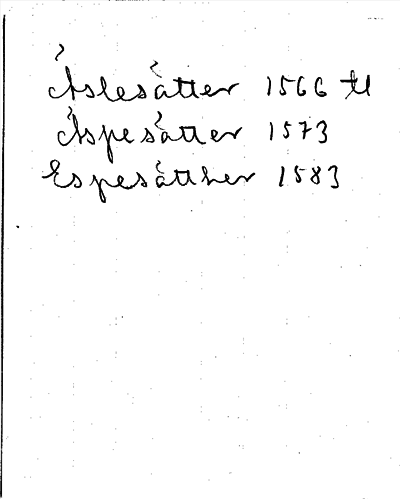 Åslesåtter 1566 tl
Åspesåtter 1573
Espesåtther 1583